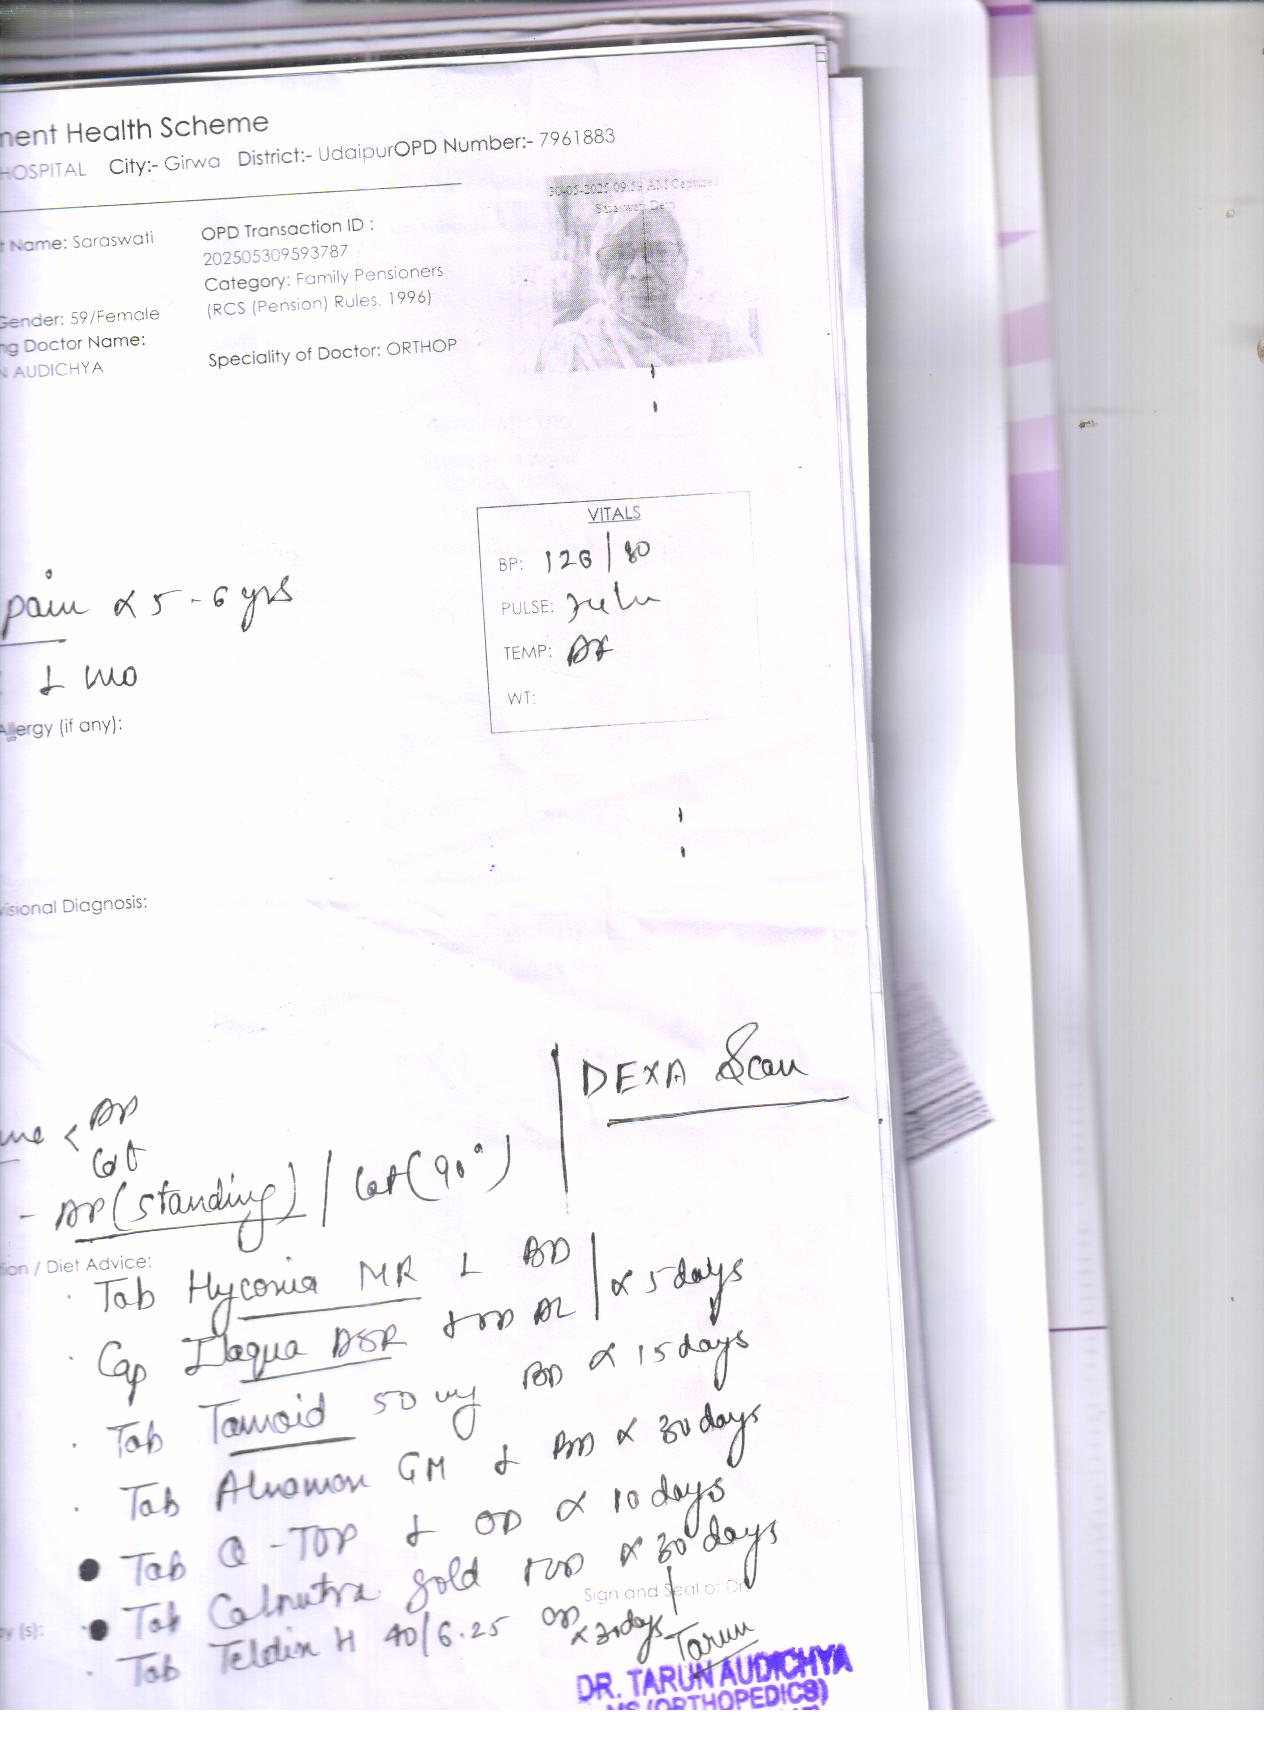 ment Health Scheme
HOSPITAL City:- Girwa District:- UdaipurOPD Number:- 7961883
30-05-2025 09:59 AM Captured
Saraswati Devi
Name: Saraswati
OPD Transaction ID :
202505309593787
Category: Family Pensioners
(RCS (Pension) Rules, 1996)
Gender: 59/Female
ng Doctor Name:
N AUDICHYA
Speciality of Doctor: ORTHOP
VITALS
BP: 126/80
PULSE:
TEMP:
WT:
pain x 5-6 yrs
1 mo
Allergy (if any):
visional Diagnosis:
DEXA Scan
AP
Lat
- AP (standing) / Lat (90°)
ion / Diet Advice:
Tab Hyconia MR 1 BD
Cap Ilaqua DSR 1 OD x 5 days
Tab Tamoid 50 mg BD x 15 days
Tab Alnamon GM 1 BD x 30 days
Tab Q-TOP 1 OD x 10 days
Tab Calnutra gold 1 OD x 30 days
Sign and Seal of Dr.
y (s):
Tab Teldin H 40/6.25 OD x 30 days
Tarun
DR. TARUN AUDICHYA
MS (ORTHOPEDICS)